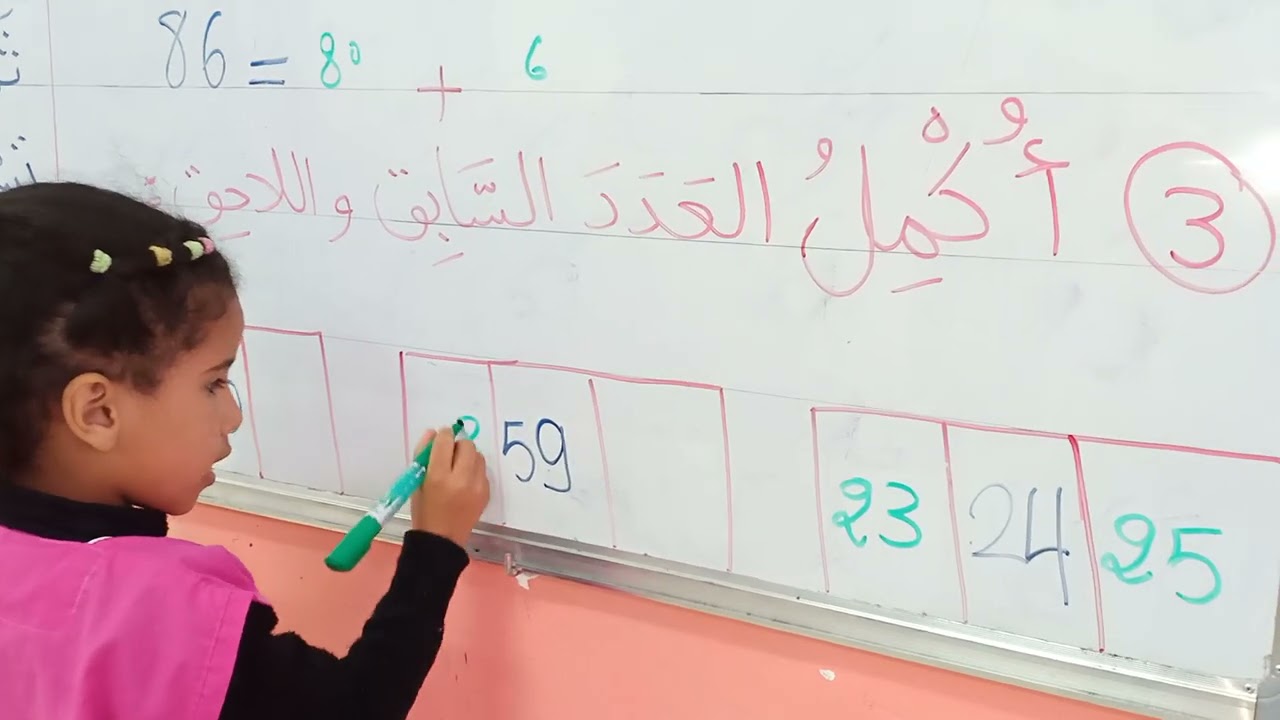 86 = 80 + 6
3 أُكْمِلُ العَدَدَ السَّابِق واللاحِق
59
23 24 25